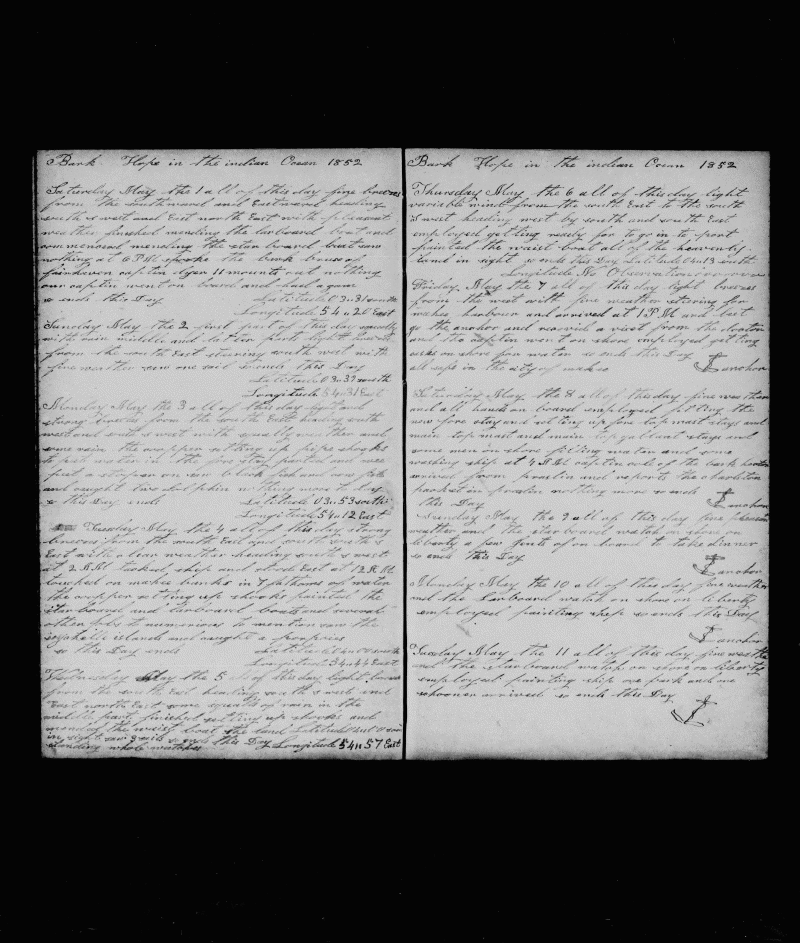 Bark Hope in the indian Ocean 1852
Saturday May the 1 all of this day fine breeses
from the southward and Eastward heading
south s west and East north East with pleasent
weather finished mending the larboard boat and
commensed mending the star board boat saw
nothing at 6 P M spoke the bark
fairhaven captin dyer 11 months out nothing
our captin went on board and had a gam
so ends this Day Latitude 03 31 south
Longitude 54 20 East
Sunday May the 2 first part of this day squally
with rain middle and latter parts light breeses
from the south East steering south west with
fine weather saw one sail so ends this Day
Latitude 03 39 south
Longitude 54 31 East
Monday May the 3 all of this day light and
strong breeses from the south East heading south
west and south s west with squally weather and
some rain the cooper setting up pipe shooks
to put water in the fore stay parted and we
put a stopper on saw black fish and cow fish
and caught two dolphin nothing more to day
so this Day ends Latitude 03 53 south
Longitude 54 12 East
Tuesday May the 4 all of this day strong
breeses from the south East and south south
East with clear weather heading south s west
at 2 A.M. tacked ship and stood East at 12 A.M.
touched on mahes banks in 7 fathoms of water
the cooper setting up shooks painted the
star board and larboard boats and several
other jobs to numerious to mention saw the
seychelle islands and caught a porpoies
so this Day ends Latitude south
Longitude 54 44 East
Wednesday May the 5 all of this day light breeses
from the south East heading south s west and
East north East some squals of rain in the
middle part finished setting up shooks and
mended the waist boat the land Latitude
in sight saw 2 sails so ends this Day Longitude 54 57 East
standing whole watches
Bark Hope in the indian Ocean 1852
Thursday May the 6 all of this day light
variable winds from the south East to the south
s west heading west by south and south East
employed getting ready for to go in to port
painted the waist boat all of the
land in sight so ends this Day Latitude 04 13 south
Longitude No Observation
Friday May the 7 all of this day light breeses
from the west with fine weather steering for
mahes harbour and arrived at 1 P.M and let
go the anchor and received a visit from the doctor
and the captin went on shore employed getting
casks on shore for water so ends this Day
all safe in the city of mahee anchor
Saturday May the 8 all of this day fine weather
and all hands on board employed fitting the
new fore stay and setting up fore top mast stays and
main top mast and main top gallant stays and
some men on shore filling water and some
washing ship at 4 P.M captin cole of the bark
arrived from praslin and reports the charleston
packet in praslin nothing more so ends
this Day anchor
Sunday May the 9 all of this day fine pleasent
weather and the star board watch on shore on
liberty a few gents of on board to take dinner
so ends this Day
anchor
Monday May the 10 all of this day fine weather
and the Larboard watch on shore on liberty
employed painting ship so ends this Day
anchor
Tuesday May the 11 all of this day fine weather
and the starboard watch on shore on liberty
employed painting ship one bark and one
schooner arrived so ends this Day